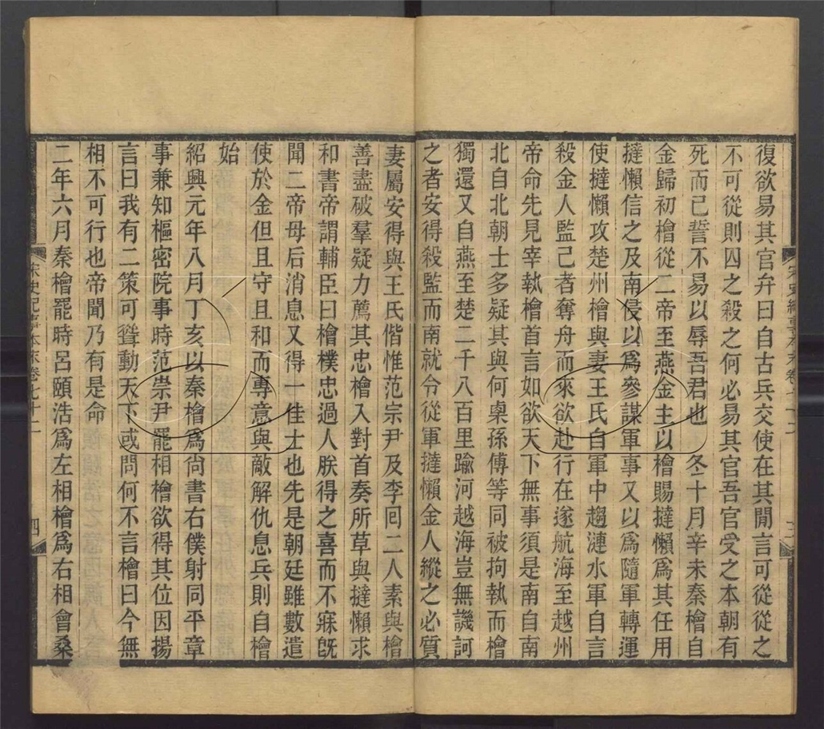 復欲易其官弁曰自古兵交使在其閒言可從從之
不可從則囚之殺之何必易其官吾官受之本朝有
死而已誓不易以辱吾君也 冬十月辛未秦檜自
金歸初檜從二帝至燕金主以檜賜撻懶爲其任用
撻懶信之及南侵以爲參謀軍事又以爲隨軍轉運
使撻懶攻楚州檜與妻王氏自軍中趨漣水軍自言
殺金人監己者奪舟而來欲赴行在遂航海至越州
帝命先見宰執檜首言如欲天下無事須是南自南
北自北朝士多疑其與何㮚孫傅等同被拘執而檜
獨還又自燕至楚二千八百里踰河越海豈無譏訶
之者安得殺監而南就令從軍撻懶金人縱之必質
宋史紀事本末卷七十二 三
妻屬安得與王氏偕惟范宗尹及李回二人素與檜
善盡破羣疑力薦其忠檜入對首奏所草與撻懶求
和書帝謂輔臣曰檜樸忠過人朕得之喜而不寐旣
聞二帝母后消息又得一佳士也先是朝廷雖數遣
使於金但且守且和而專意與敵解仇息兵則自檜
始
紹興元年八月丁亥以秦檜爲尚書右僕射同平章
事兼知樞密院事時范宗尹罷相檜欲得其位因揚
言曰我有二策可聳動天下或問何不言檜曰今無
相不可行也帝聞乃有是命
二年六月秦檜罷時呂頤浩爲左相檜爲右相會桑
宋史紀事本末卷七十二 四